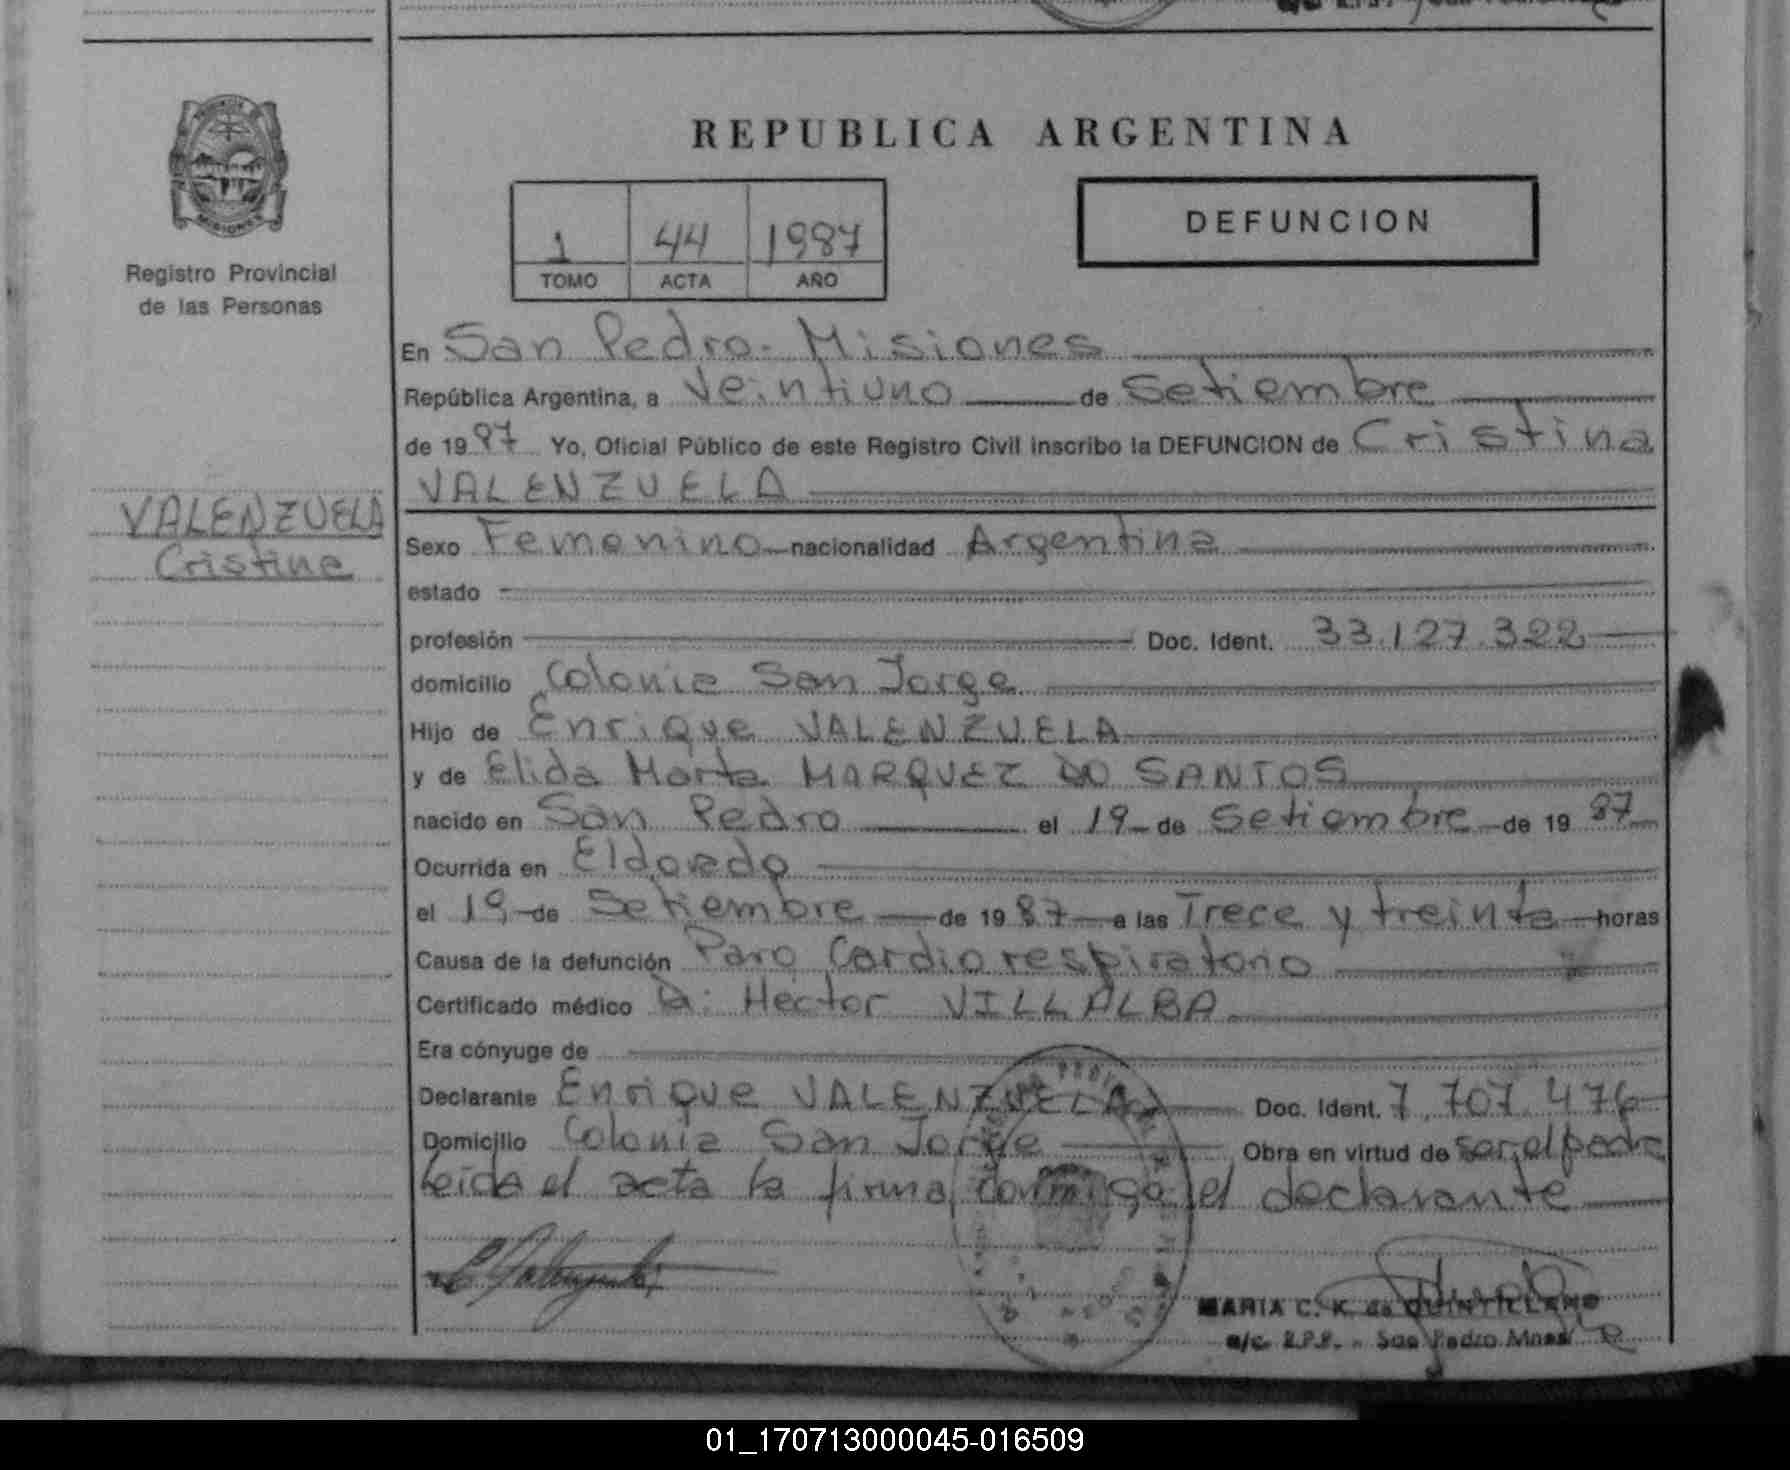 REPUBLICA ARGENTINA
DEFUNCION
1 44 1987
TOMO ACTA AÑO
MISIONES
Registro Provincial
de las Personas
VALENZUELA
Cristina
En San Pedro - Misiones
República Argentina, a Veintiuno de Setiembre
de 19 87 Yo, Oficial Público de este Registro Civil inscribo la DEFUNCION de Cristina
VALENZUELA
Sexo Femenino nacionalidad Argentina
estado
profesión Doc. Ident. 33.127.322
domicilio Colonia San Jorge
Hijo de Enrique VALENZUELA
y de Elida Marta MARQUEZ DO SANTOS
nacido en San Pedro el 19 de Setiembre de 19 87
Ocurrida en Eldorado
el 19 de Setiembre de 19 87 a las Trece y treinta horas
Causa de la defunción Paro Cardiorespiratorio
Certificado médico Dr. Hector VILLALBA
Era cónyuge de
Declarante Enrique VALENZUELA Doc. Ident. 7.707.476
Domicilio Colonia San Jorge Obra en virtud de ser el padre
leida el acta la firma conmigo el declarante
MARIA C. K. de QUINTILLANO
a/c. R.P.P. - San Pedro Mnes
01_170713000045-016509